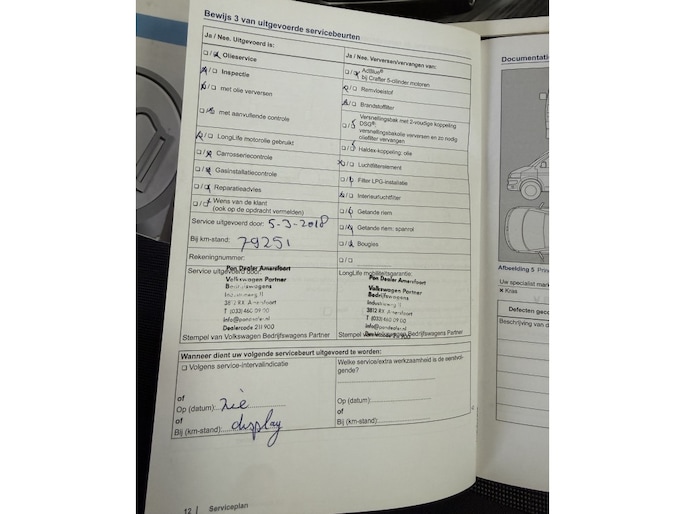 Bewijs 3 van uitgevoerde servicebeurten
Ja / Nee. Uitgevoerd is:
Ja / Nee. Verversen/vervangen van:
Olieservice
AdBlue®
bij Crafter 5-cilinder motoren
Inspectie
Remvloeistof
met olie verversen
Brandstoffilter
met aanvullende controle
Versnellingsbak met 2-voudige koppeling
DSG®:
versnellingsbakolie verversen en zo nodig
oliefilter vervangen
LongLife motorolie gebruikt
Haldex-koppeling: olie
Carrosseriecontrole
Luchtfilterelement
Gasinstallatiecontrole
Filter LPG-installatie
Reparatieadvies
Interieurluchtfilter
Wens van de klant
(ook op de opdracht vermelden)
Getande riem
Service uitgevoerd door: 5-3-2018
Getande riem: spanrol
Bij km-stand: 79251
Bougies
Rekeningnummer:
Service uitgevoerd door:
LongLife mobiliteitsgarantie:
Pon Dealer Amersfoort
Volkswagen Partner
Bedrijfswagens
Industrieweg 11
3812 RX Amersfoort
T (033) 460 09 00
info@pondealer.nl
Dealercode 211 900
Pon Dealer Amersfoort
Volkswagen Partner
Bedrijfswagens
Industrieweg 11
3812 RX Amersfoort
T (033) 460 09 00
info@pondealer.nl
Dealercode 211 900
Stempel van Volkswagen Bedrijfswagens Partner
Stempel van Volkswagen Bedrijfswagens Partner
Wanneer dient uw volgende servicebeurt uitgevoerd te worden:
Volgens service-intervalindicatie
Welke service/extra werkzaamheid is de eerstvol-
gende?
of
Op (datum): zie
of
Bij (km-stand): display
Op (datum):
of
Bij (km-stand):
12 | Serviceplan
Documentati
Afbeelding 5 Prin
Uw specialist mark
× Kras
Defecten geco
Beschrijving van d